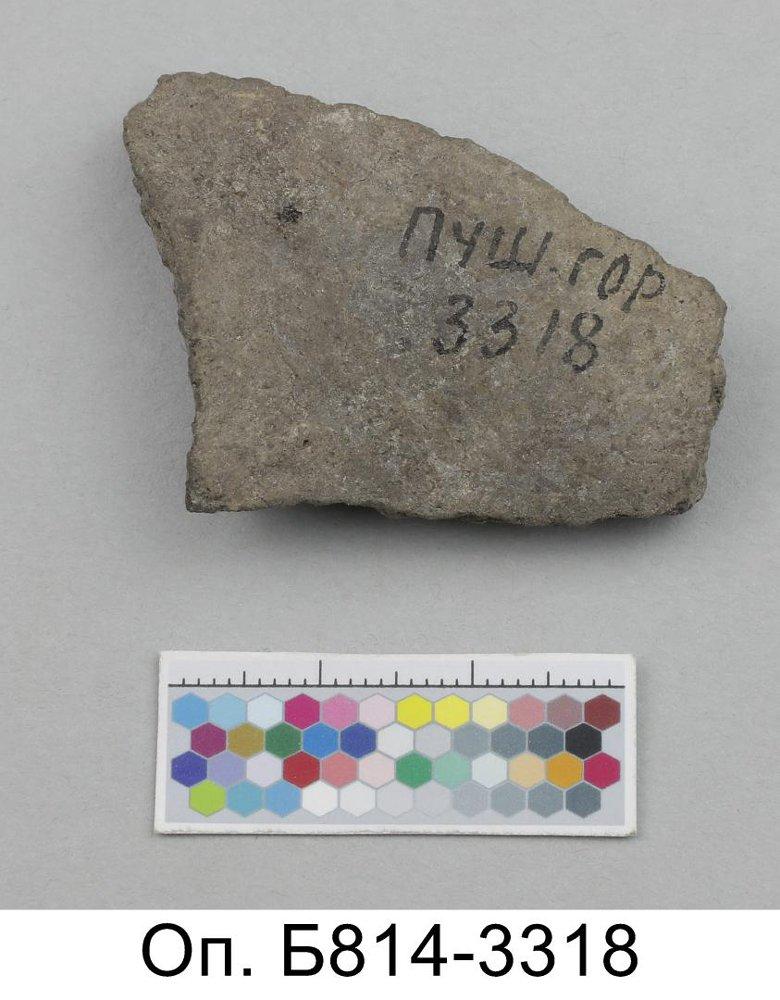 ПУШ.ГОР
3318
Оп. Б814-3318